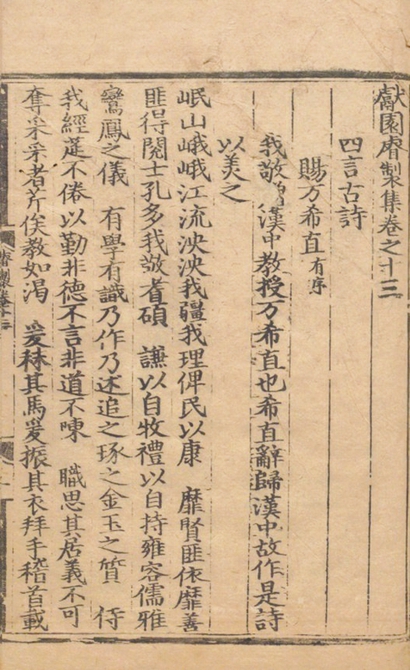 獻園睿製集卷之十三
四言古詩
賜万希直有序
我敬 漢中教授万希直也希直辭歸漢中故作是詩
以美之
岷山峨峨江流泱泱我疆我理俾民以康　靡賢匪依靡善
匪得閱士孔多我敬耆碩　謙以自牧禮以自持雍容儒雅
鸞鳳之儀　有學有識乃作乃述追之琢之金玉之質　侍
我經筵不倦以勤非德不言非道不陳　職思其居義不可
奪采采者芹俟教如渴　爰秣其馬爰振其衣拜手稽首載